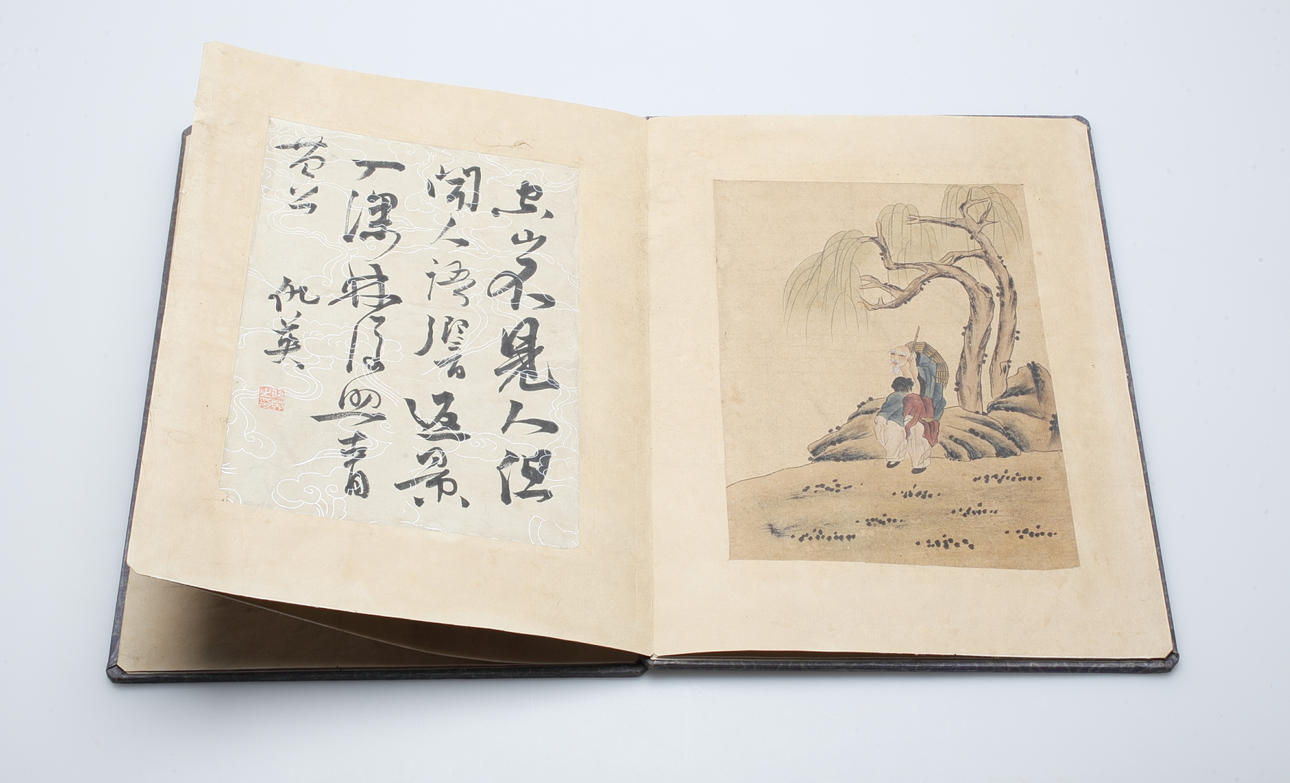 空山不見人但
聞人語響返景
入深林復照青
苔上
仇英